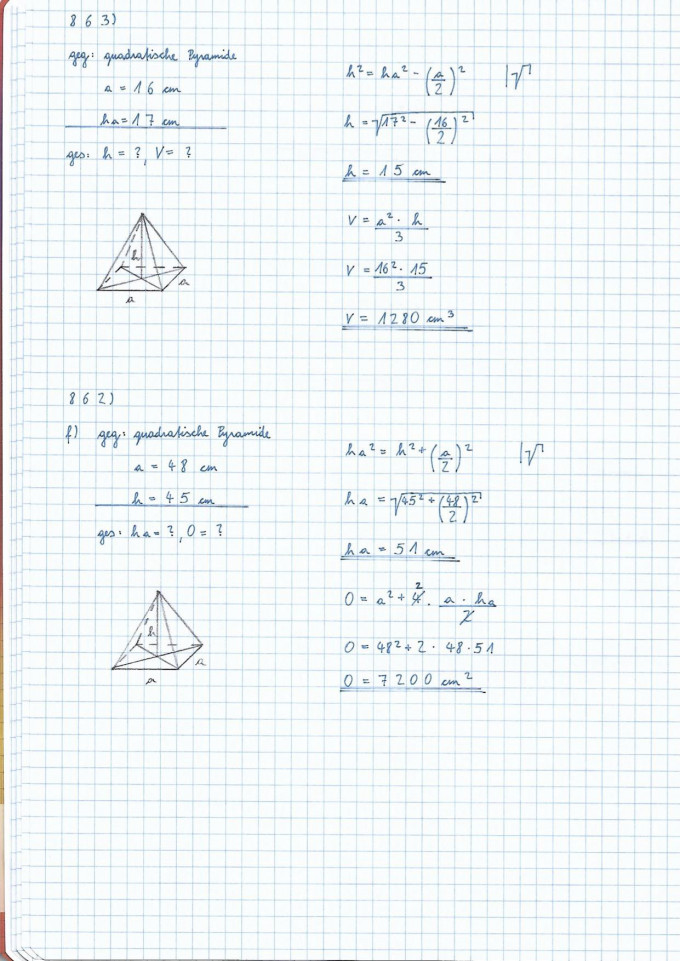 863)
geg: quadratische Pyramide
a = 16 cm
ha = 17 cm
ges: h = ?, V = ?
h
a
a
h² = ha² - (a/2)² |√
h = √(17² - (16/2)²)
h = 15 cm
V = a² · h / 3
V = 16² · 15 / 3
V = 1280 cm³
862)
f) geg: quadratische Pyramide
a = 48 cm
h = 45 cm
ges: ha = ?, O = ?
h
a
a
ha² = h² + (a/2)² |√
ha = √(45² + (48/2)²)
ha = 51 cm
O = a² + 4 2 · a · ha / 2
O = 48² + 2 · 48 · 51
O = 7200 cm²